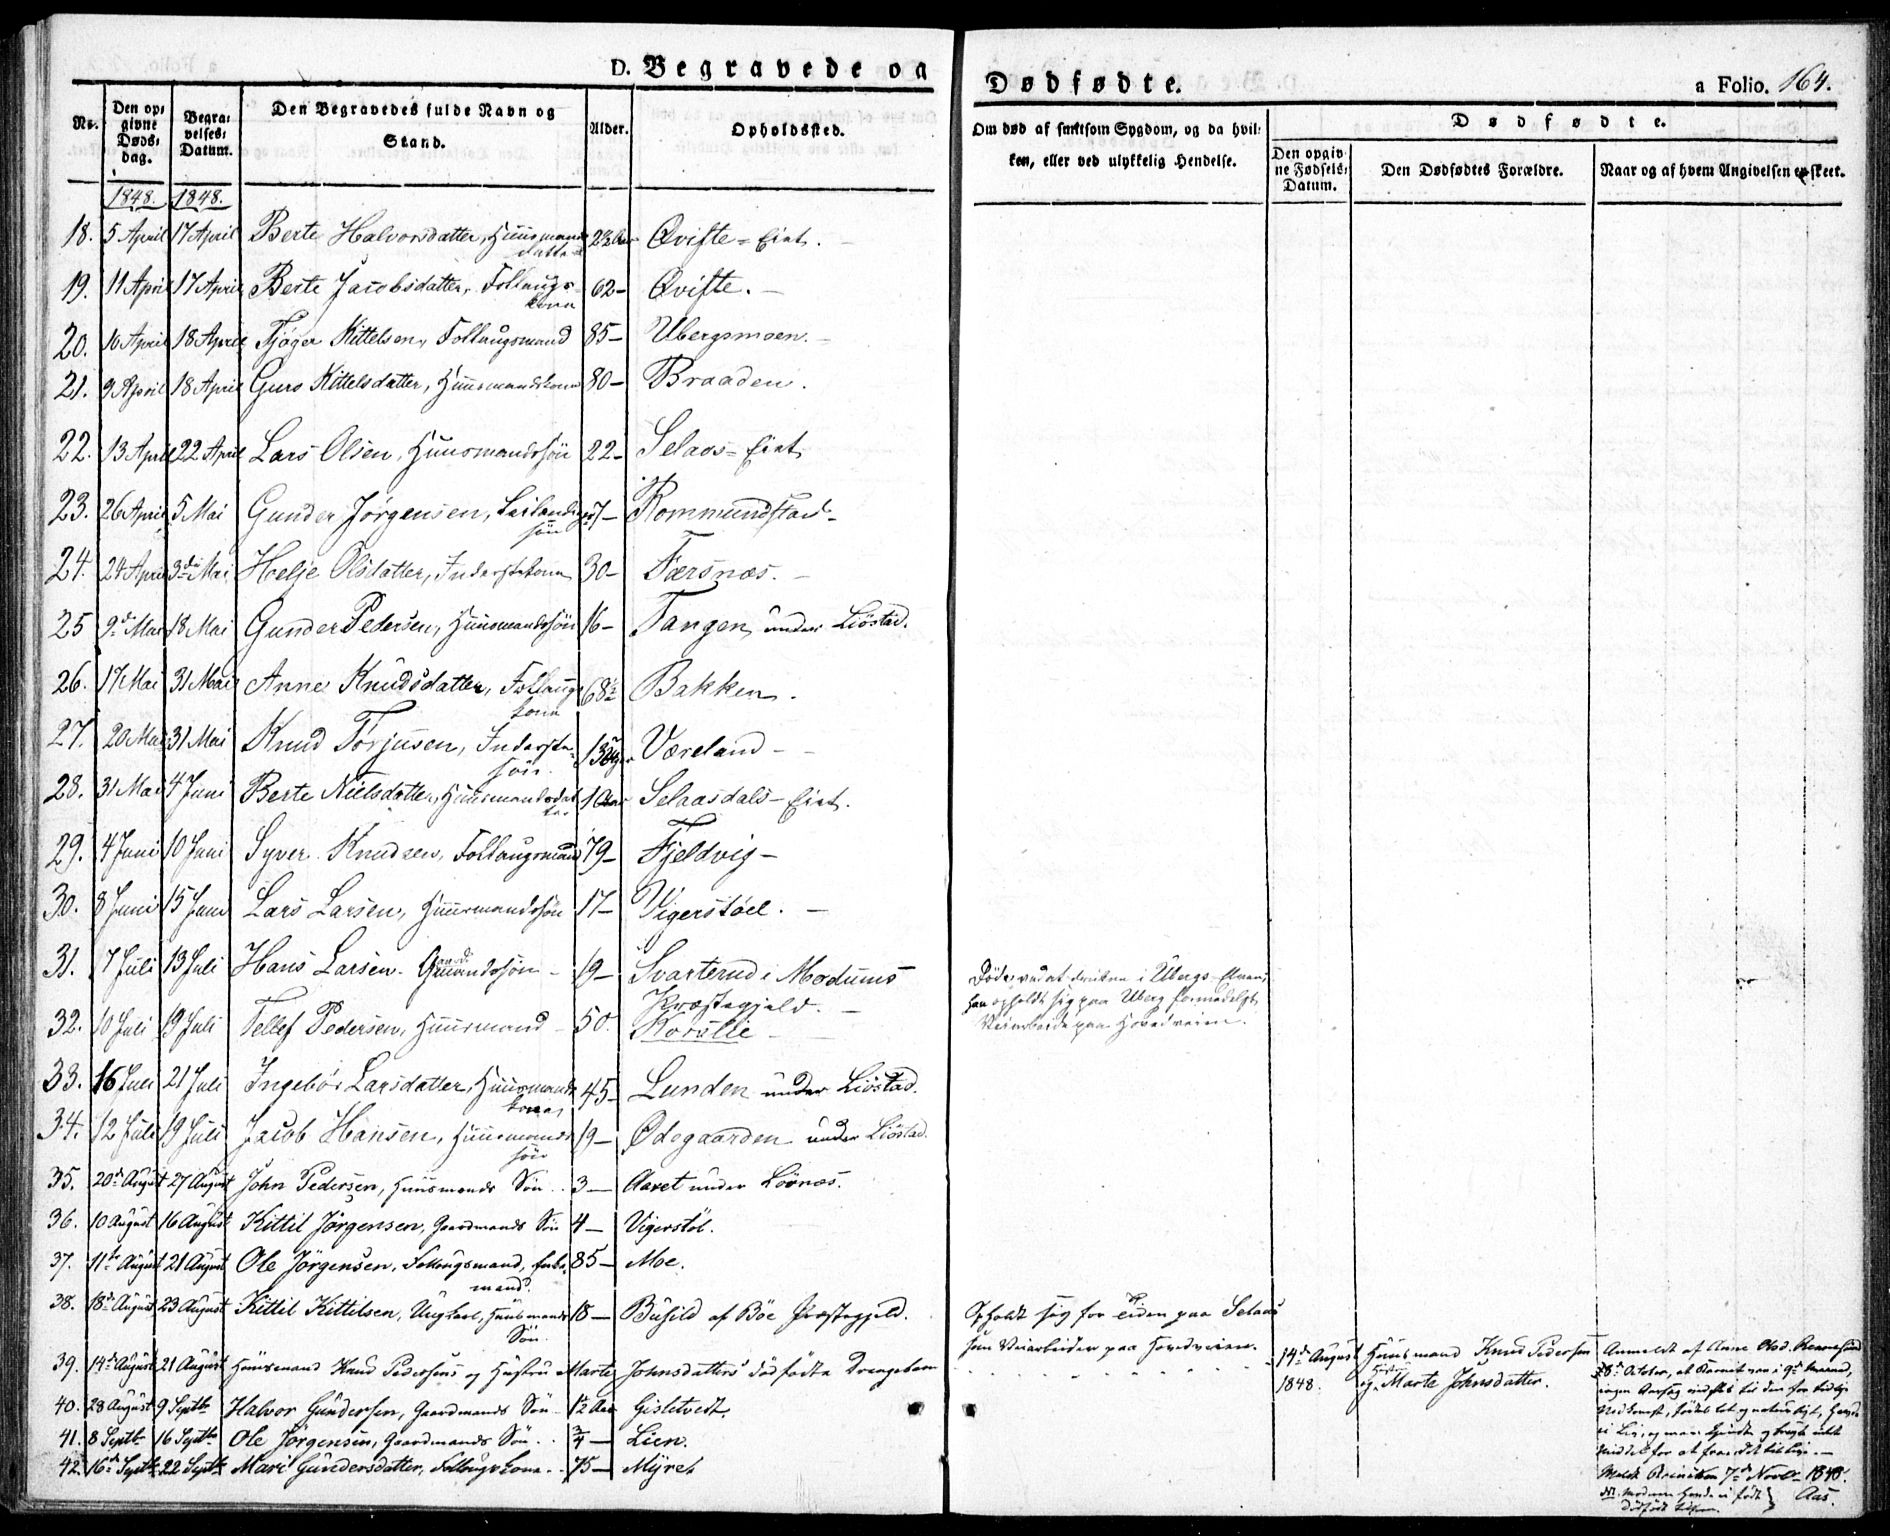 D. Begravede og Dødfødte. a Folio. 164.
No. Den opgivne Dødsdag. Begravelses Datum. Den Begravedes fulde Navn og Stand. Alder. Opholdssted.
Om død af smitsom Sygdom, og da hvilken, eller ved ulykkelig Hendelse.
Dødfødte.
Den opgivne Fødsels Datum. Den Dødfødtes Forældre. Naar og af hvem Angivelsen er skeet.
1848. 1848.
18. 5 April 17 April Berte Halvorsdatter, Huusmands datter Qvifte-Eiet.
19. 11 April 17 April Berte Jacobsdatter, Follaugs kone 62- Qvifte.
20. 16 April 18 April Tjøger Kittelsen, Follaugsmand 85- Ubergsmoen.
21. 9 April 18 April Guro Kittelsdatter, Huusmandskone 80- Braaden.
22. 13 April 22 April Lars Olsen, Huusmandssön 22- Selaas-Eiet.
23. 26 April 5 Mai Gunder Jörgensen, Leilendings sön 7- Rommundstad-
24. 24 April 3die Mai Helje Olsdatter, Inderstekone 30- Færsnæs.
25 9de Mai 18 Mai Gunder Pedersen, Huusmandssön 16- Tangen under Liöstad.
26. 17 Mai 31 Mai Anne Knudsdatter, Follaugs kone 68½ Bakken.
27. 20 Mai 31 Mai Knud Törjusen, Inderste sön. Væreland-
28. 31 Mai 4 Juni Berte Nielsdatter, Huusmandsdatter 1 Aar Selaasdals-Eiet.
29. 4 Juni 10 Juni Syver Knudsen, Follaugsmand 79- Fjeldvig-
30. 8 Juni 15 Juni Lars Larsen, Huusmandssön 17- Vigerstöel.
31. 7 Juli 13 Juli Hans Larsen, Gaardmandssön 19- Svarterud i Modums Præstegjeld.
Döde ved at drukne i Ubergs-Elven,
han opholdt sig paa Uberg formedelst
Veiarbeide paa Hovedveien.
32. 10 Juli 19 Juli Tellef Pedersen, Huusmand 50. Korslie
33. 16 Juli 21 Juli Ingebör Larsdatter, Huusmands kone 45- Lunden under Liöstad.
34. 12 Juli 19 Juli Jacob Hansen, Huusmands sön 19- Ödegaarden under Liöstad.
35. 20de August 27 August John Pedersen, Huusmands Sön 3- Aaset under Lövnæs.
36. 10 August 16 August Kittil Jörgensen, Gaardmands Sön 4- Vigerstöl.
37. 11te August 21 August Ole Jörgensen, Follougsmand, Enkemand. 85- Moe.
38. 18de August 23 August Kittil Kittilsen, Ungkarl, Huusmands Sön. 18- Busild af Böe Præstegjeld.
Opholdt sig for Tiden paa Selaas
som Veiarbeider paa Hovedveien.
39. 14de August 21 August Huusmand Knud Pedersens og Hustru Marte Johnsdatters dödfödte Drengebarn
14de August 1848. Huusmand Knud Pedersen og Hustru Marte Johnsdatter.
Anmeldt af Anne Olsd.
October, at Barnet var i
40. 28 August 9 Septbr Halvor Gundersen, Gaardmands Sön 12 Aar Gisletvedt.
41. 8 Septbr 16 Septbr Ole Jörgensen, Gaardmands Sön ¾- Lien.
42. 16de Septbr 22 Septbr Mari Gundersdatter, Follougskone 75- Myret
7de Novbr 1848.
Aas.